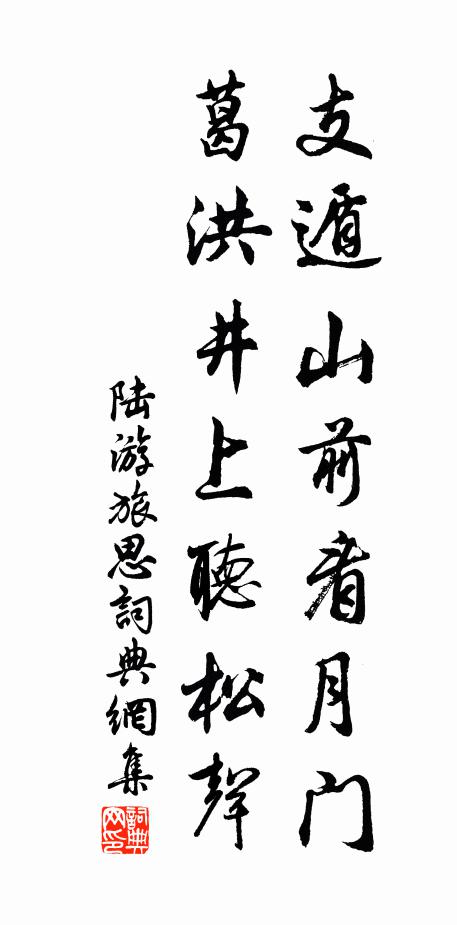 支遁山前看月门
葛洪井上聽松聲
陆游旅思詞典網集
詞典
网印